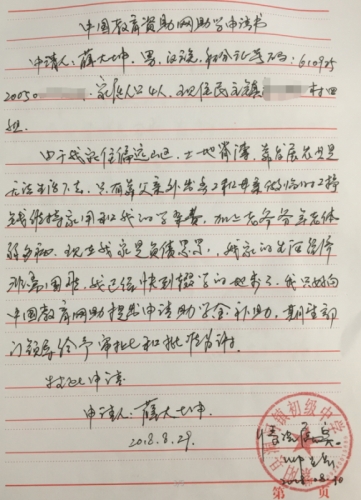 中国教育资助网助学申请书
申请人：薛大坤，男，汉族，身份证号码：610925
20050 家庭人口4人，现住民主镇 村四
组。
由于我家住偏远山区，土地脊薄，靠务农只是
无法生活下去，只有靠父亲外出务工和母亲做临时工挣
钱维持家用和我们的学杂费，加上爷爷年老体
弱多病，现在我家是负债累累，我家的生活条件
非常困难，我已经快到辍学的地步了，我只好向
中国教育网助提出申请助学金补助，期望部
门领导给予审批和批准为谢！
特此申请
申请人：薛大坤
2018.8.29.
情况属实。
镇初级中学